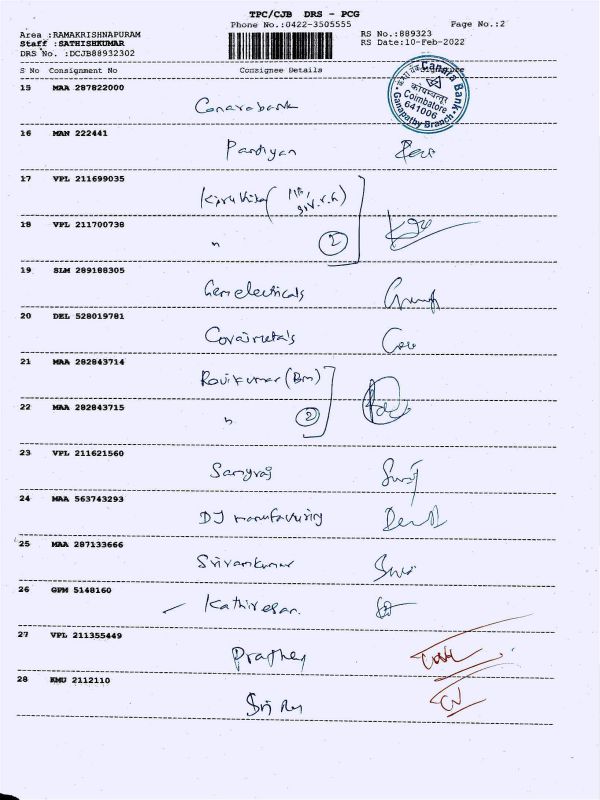 TPC/CJB DRS - PCG
Phone No.:0422-3505555
Page No.:2
Area :RAMAKRISHNAPURAM
RS No.:889323
Staff :SATHISHKUMAR
RS Date:10-Feb-2022
DRS No. :DCJB88932302
S No Consignment No Consignee Details
Canara Bank
कोयम्बत्तूर
Coimbatore
641006
Ganapathy Branch
15 MAA 287822000
Canarabank
16 MAN 222441
Pandiyan
17 VPL 211699035
18 VPL 211700738
"
2
19 SLM 289188305
Gem electricals
20 DEL 528019781
21 MAA 282843714
Ravikumar (Bm)
22 MAA 282843715
"
2
23 VPL 211621560
24 MAA 563743293
DJ manufacturing
25 MAA 287133666
26 GPM 5148160
Kathiresan
27 VPL 211355449
28 KMU 2112110